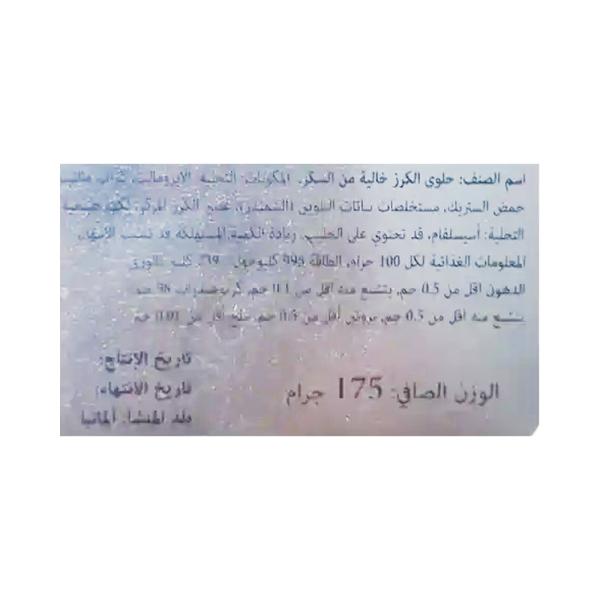 اسم الصنف: حلوى الكرز خالية من السكر. المكونات: التحلية الايزومالت,
حمض الستريك, مستخلصات نباتات التلوين (الشمندر), عصير الكرز المركز, نكهة طبيعية
التحلية: أسيسلفام, قد تحتوي على الحليب, زيادة الكمية المستهلكة قد تسبب الاسهال,
المعلومات الغذائية لكل 100 جرام, الطاقة 995 كيلوجول
الدهون اقل من 0.5 جم, يتشبع منه اقل من 0.1 جم, كربوهيدرات 98 جم
يتشبع منه اقل من 0.5 جم, بروتين أقل من 0.5 جم, ملح اقل من 0.01 جم
تاريخ الإنتاج:
تاريخ الإنتهاء:
الوزن الصافي: 175 جرام
بلد المنشأ: ألمانيا